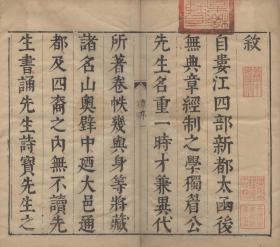 敘
自婁江四部新都太函後
無典章經制之學獨公
先生名重一時才兼異代
所著卷帙幾與身等將藏
諸名山奧壁中廼大邑通
都及四裔之內無不讀先
生書誦先生詩寶先生之